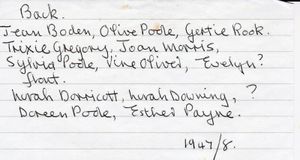 Back.
Jean Boden, Olive Poole, Gertie Rook.
Trixie Gregory, Joan Morris,
Sylvia Poole, Vine Oliver, Evelyn?
front.
Norah Dorricott, Norah Downing, ?
Doreen Poole, Esther Payne.
1947/8.